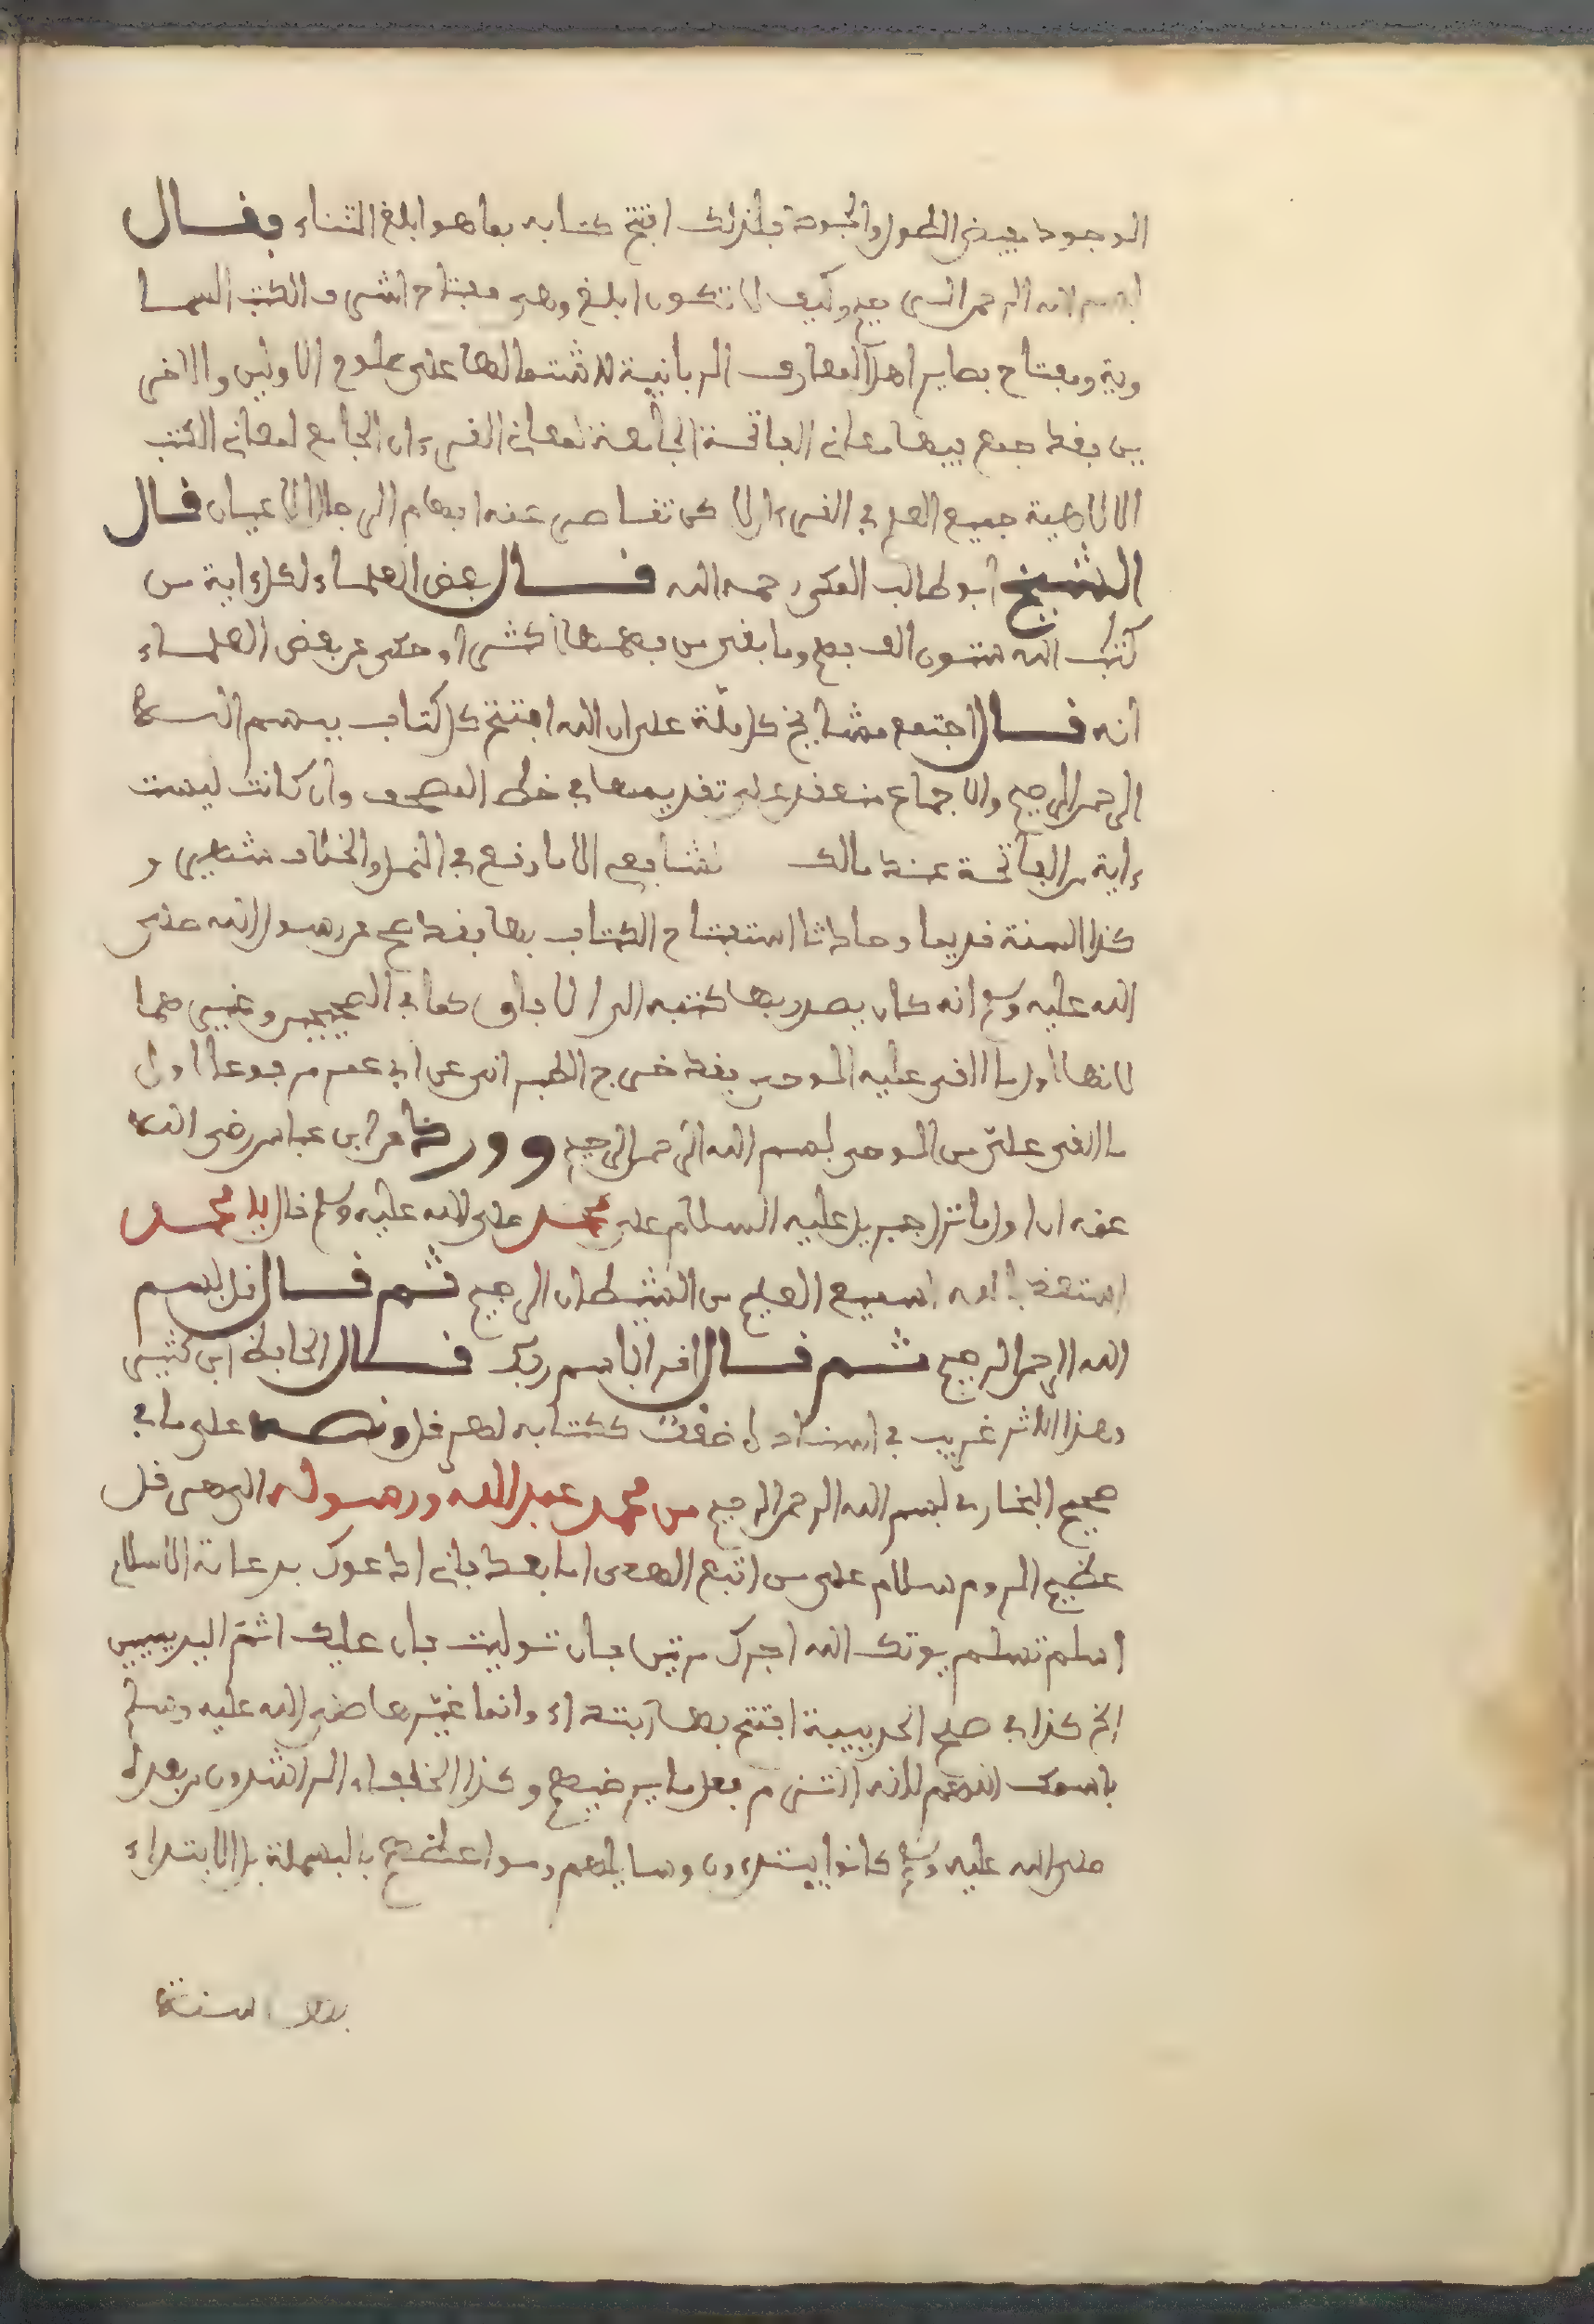 الوجود مفيض الطول والجود فلذلك افتتح كتابه بما هو ابلغ الثناء فقال
بسم الله الرحمن الرحيم وكيف لا تكون ابلغ وهي مفتاح اشرف الكتب السما
وية ومفتاح بصاير اهل المعارف الربانية لاشتمالها على علوم الاولين والاخر
ين فقد جمع فيها معاني الفاتحة الجامعة لمعاني القرءان الجامع لمعاني الكتب
الالاهية جميع العلم في القرءان لاكن تقاصر عنه افهام الرجال الاعيان قال
الشيخ ابو طالب المكي رحمه الله قال بعض العلماء لكل ءاية من
كتاب الله ستون الف فهم وما بقي من فهمها اكثر او حكي عن بعض العلماء
انه قال اجتمع مشايخ كل ملة على ان الله افتتح كل كتاب ببسم الله
الرحمن الرحيم والاجماع منعقد على تقديمها في خط المصحف وان كانت ليست
ءاية من الفاتحة عند مالك لشافعي الا ما وقع في النمل والخلاف شهير و
كذا السنة قديما وحادثا استفتاح الكتاب بها فقد صح عن رسول الله صلى
الله عليه وسلم انه كان يصدر بها كتبه الى الافاق كما في الصحيحين وغيرهما
لانها اول ما القي عليه الوحي فقد خرج الطبراني عن ابي عمر مرفوعا اول
ما القي علي من الوحي بسم الله الرحمن الرحيم وورد عن ابن عباس رضي الله
عنه ان اول ما نزل جبريل عليه السلام على محمد صلى الله عليه وسلم قال يا محمد
استعذ بالله السميع العليم من الشيطان الرجيم ثم قال قل بسم
الله الرحمن الرحيم ثم قال اقرا باسم ربك قال الحافظ ابن كثير
وهذا الاثر غريب في اسناده ضعف ككتابه لهرقل ونصه على ما في
صحيح البخاري بسم الله الرحمن الرحيم من محمد عبد الله ورسوله الى هرقل
عظيم الروم سلام على من اتبع الهدى اما بعد فاني ادعوك بدعاية الاسلام
اسلم تسلم يوتك الله اجرك مرتين فان توليت فان عليك اثم اليريسيين
الخ كذا في صلح الحديبية افتتح بها ابتداء وانما غيرها صلى الله عليه وسلم
باسمك اللهم لانه التزم فعل ما يرضيهم وكذا الخلفاء الراشدون من بعده
صلى الله عليه وسلم كانوا يبتدءون رسايلهم ومواعظهم بالبسملة بل الابتداء
السنة